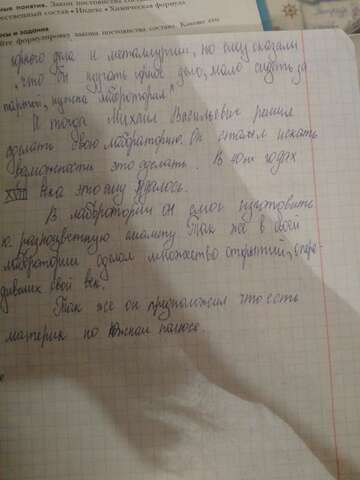 ные понятия. Закон постоянства состава
ественный состав • Индекс • Химическая формула
сы и задания
йте формулировку закона постоянства состава. Каково его
дного дела и металлургии, но ему сказали
"что бы изучать горное дело, мало сидеть за
партой, нужна лаборатория."
И тогда Михаил Васильевич решил
сделать свою лабораторию. Он стал искать
возможности это сделать. В 40ых годах
XVIII века это ему удалось.
В лаборатории он смог изготовить
разноцветную смальту. Так же в своей
лаборатории сделал множество открытий, опере-
дивших свой век.
Так же он предположил что есть
материк на Южном полюсе.